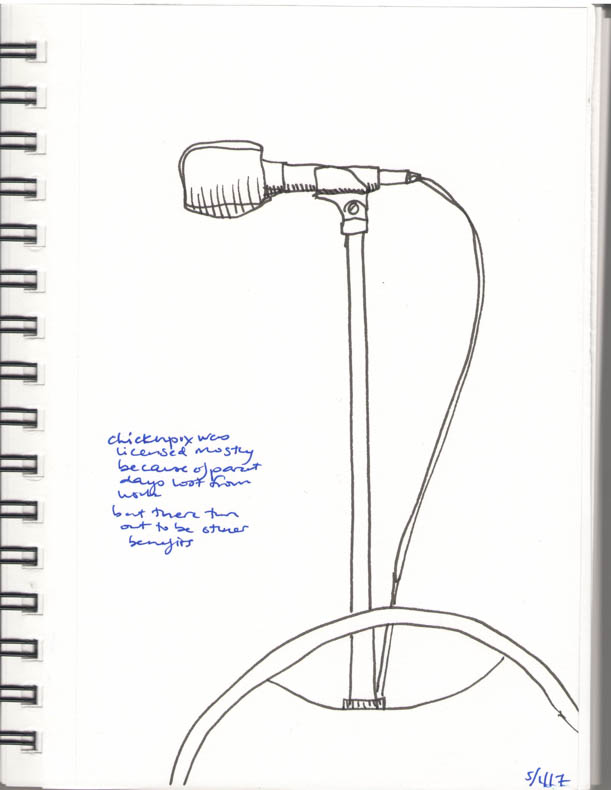 chickenpox was
licensed mostly
because of parent
days lost from
work
but there turn
out to be other
benefits
5/1/17